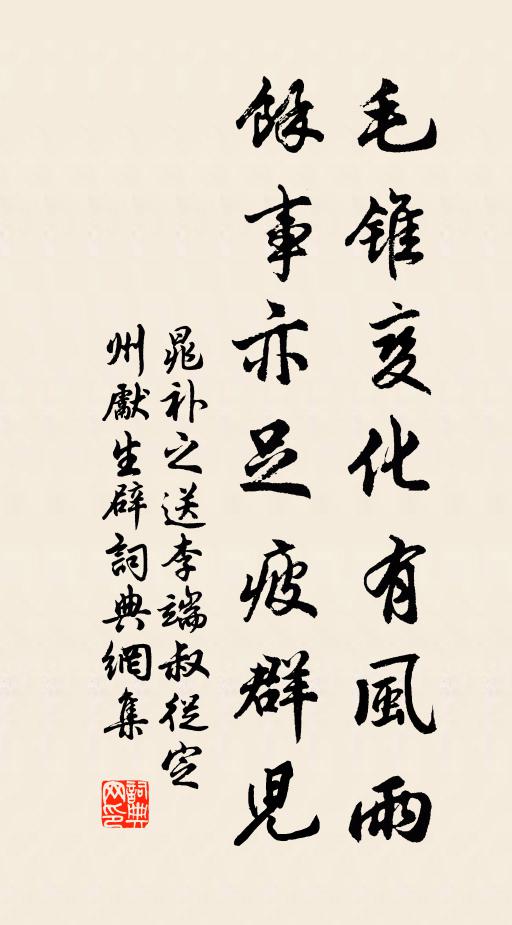 毛錐變化有風雨
餘事亦足疲群兒
晁補之送李端叔從定
州獻生辟詞典網集
詞典
网印